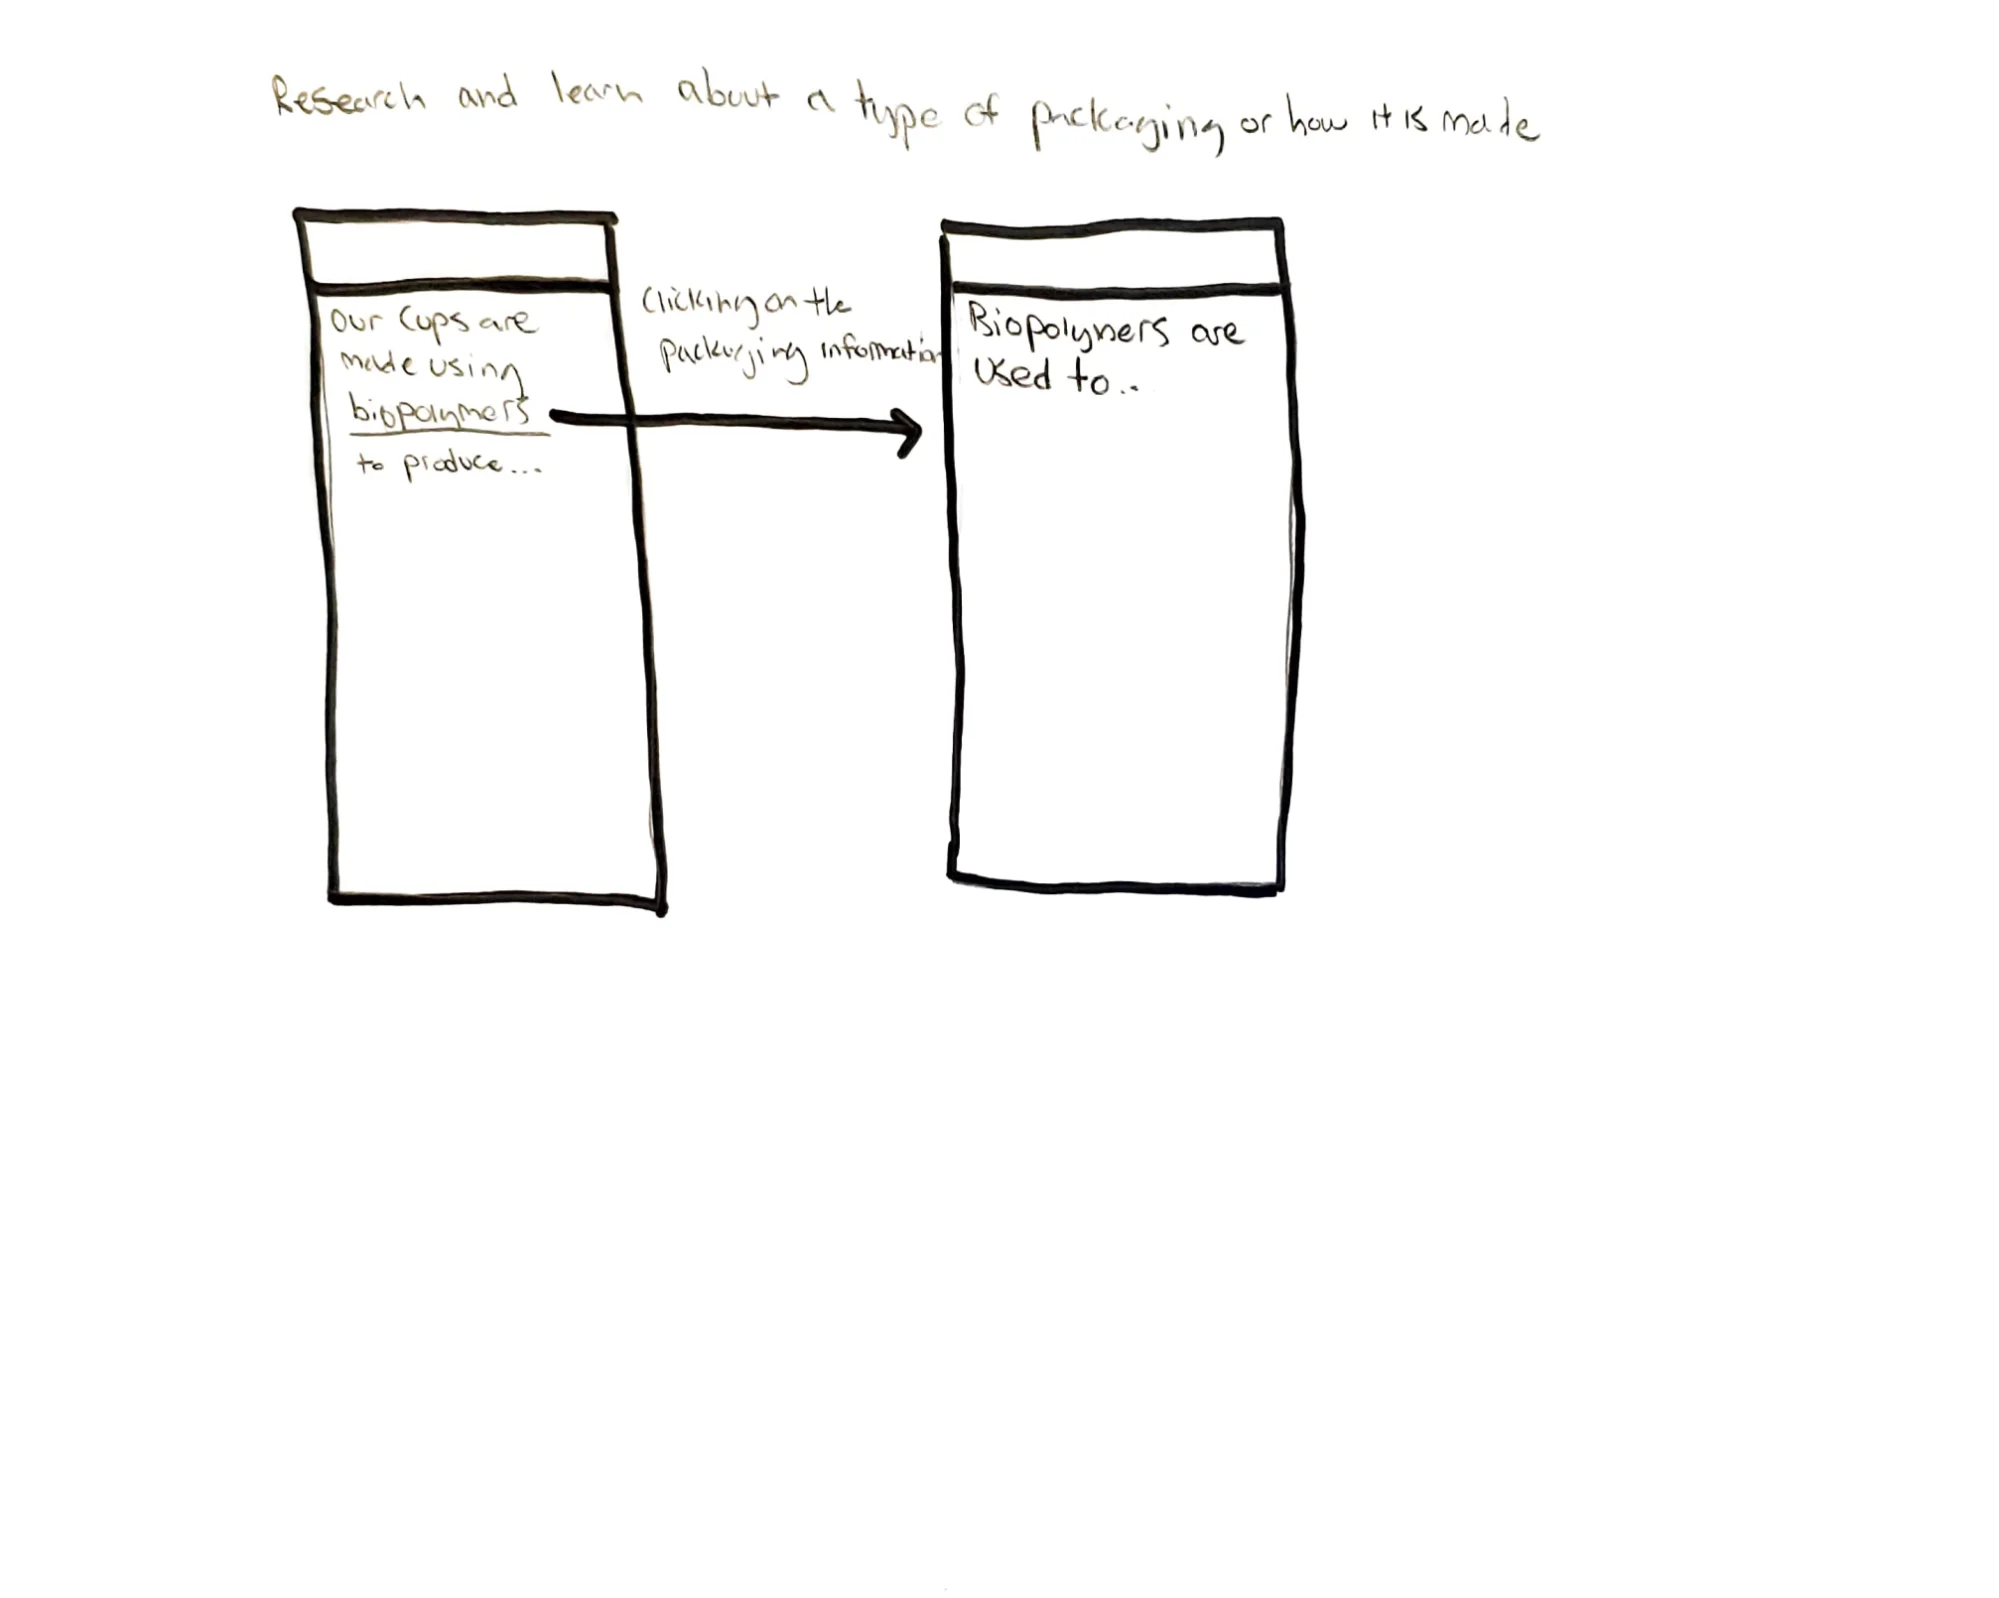 Research and learn about a type of packaging or how it is made
Our Cups are
made using
biopolymers
to produce...
Clicking on the
packaging information
Biopolymers are
Used to..